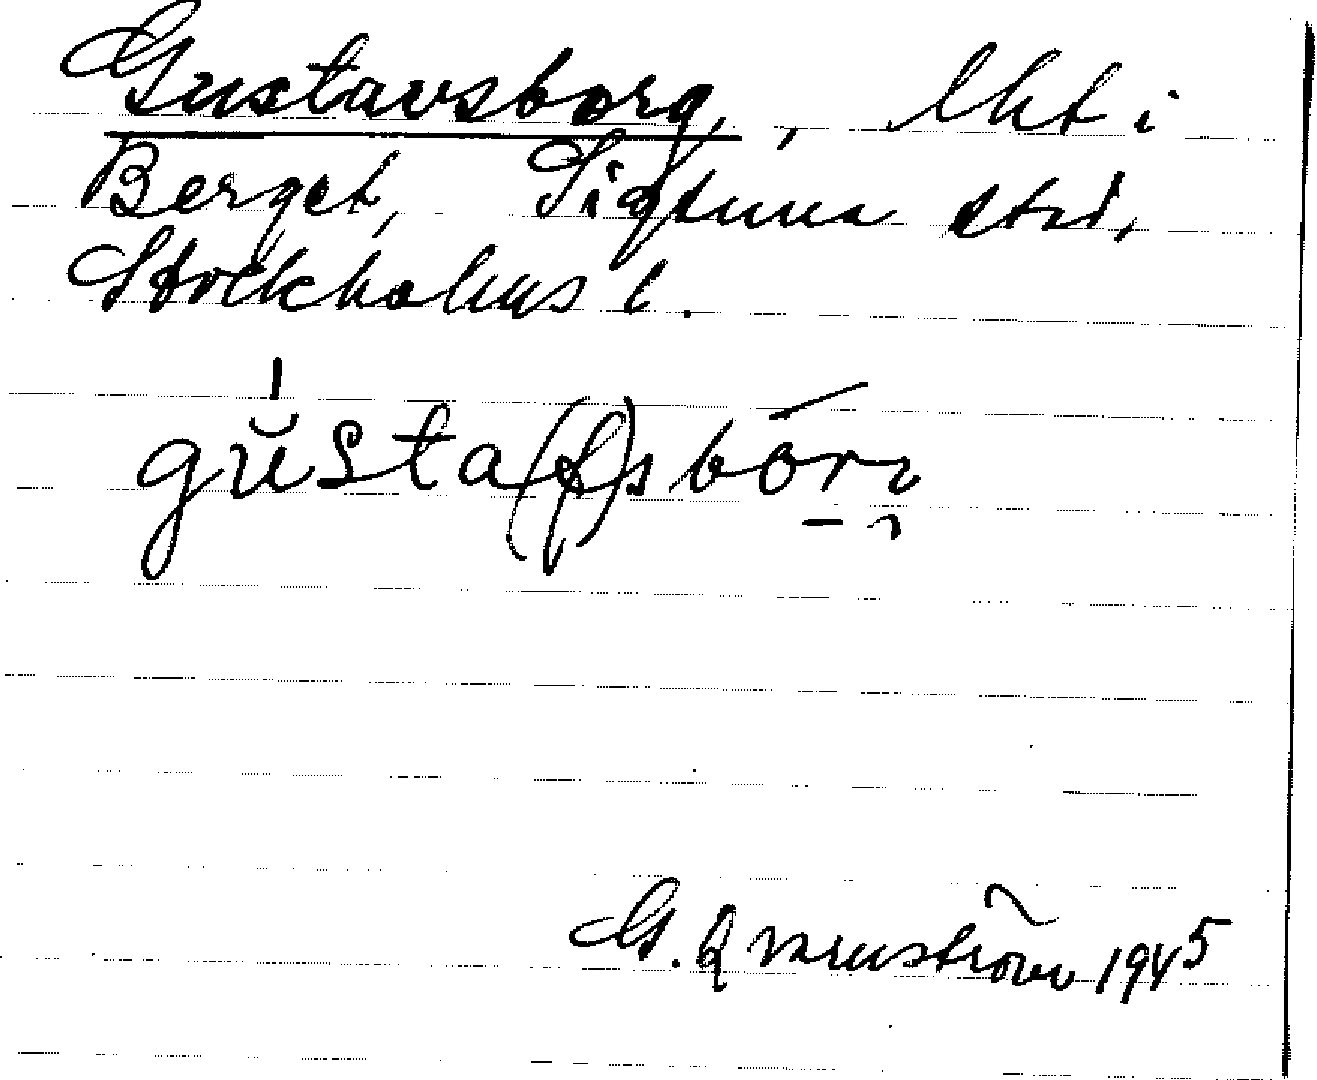 Gustavsborg, , lht i
Berget, Sigtuna std,
Stockholms l.
gŭsta(f)sbóri̯
G. Qvarnström 1945